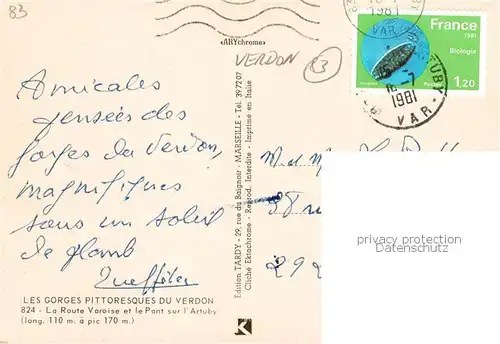 83
«ARYchrome»
VERDON
83
1981
VAR
France
1981
Biologie
1,20
16-7
1981
VAR
Amicales
pensées des
gorges du Verdon,
magnifiques
sous un soleil
de plomb
M. et M
38 r
292
Edition TARDY - 29, rue du Baignoir - MARSEILLE - Tél. 39 72 07
Cliché Ektachrome - Reprod. Interdite - Imprimé en Italie
privacy protection
Datenschutz
LES GORGES PITTORESQUES DU VERDON
824 - La Route Varoise et le Pont sur l'Artuby
(long. 110 m. à pic 170 m.)